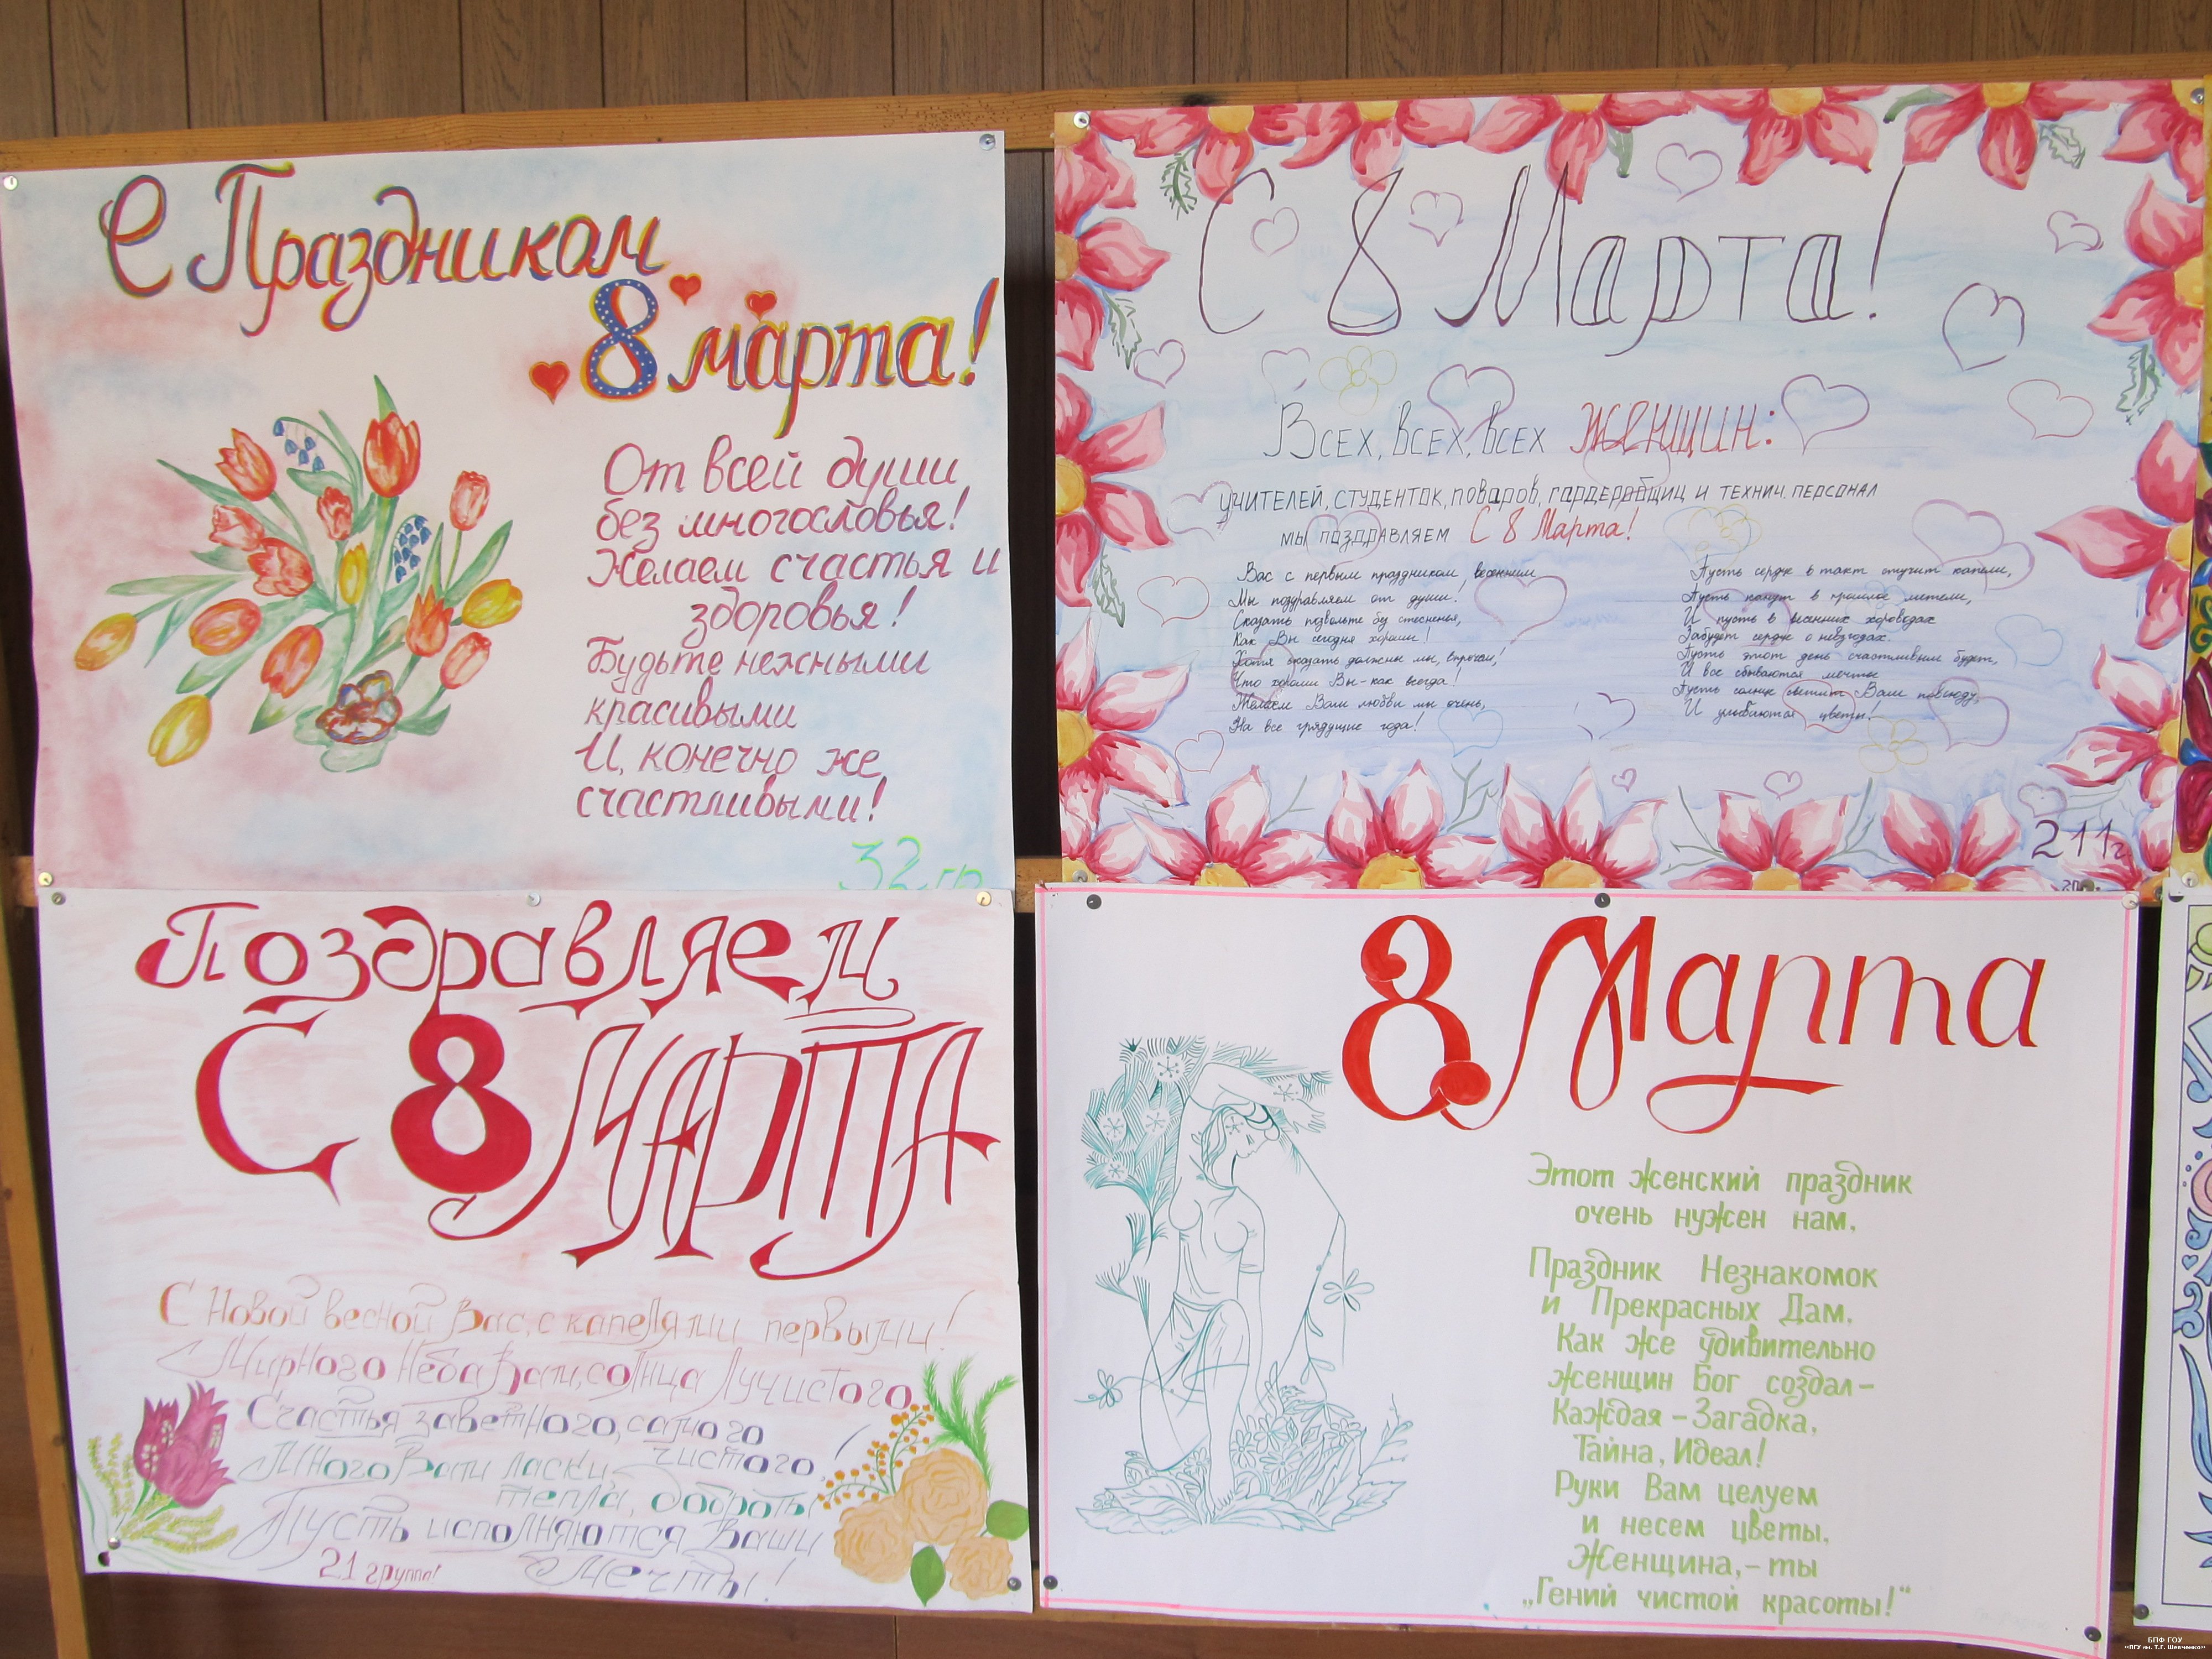 С Праздником
8 марта!
От всей души
без многословья!
Желаем счастья и
здоровья!
Будьте нежными
красивыми
И, конечно же
счастливыми!
32 гр
С 8 Марта!
Всех, всех, всех ЖЕНЩИН:
учителей, студенток, поваров, гардеробщиц и технич. персонал
мы поздравляем С 8 Марта!
Вас с первым праздником весенним
Мы поздравляем от души!
Сказать позвольте без стесненья,
Как Вы сегодня хороши!
Хотя сказать должны мы, впрочем,
Что хороши Вы - как всегда!
Желаем Вам любви мы очень,
На все грядущие года!
Пусть сердце в такт стучит капели,
Пусть канут в прошлое метели,
И пусть в весенних хороводах
Забудет сердце о невзгодах.
Пусть этот день счастливым будет,
И все сбываются мечты
Пусть солнце светит Вам повсюду,
И улыбаются цветы!
211г.
Поздравляем
С 8 МАРТА
С Новой весной Вас, с капелями первыми!
Мирного Неба Вам, солнца Лучистого
Счастья заветного, самого
чистого,
Много Вам ласки,
тепла, доброты
Пусть исполняются Ваши
Мечты!
21 группа!
8 Марта
Этот женский праздник
очень нужен нам.
Праздник Незнакомок
и Прекрасных Дам.
Как же удивительно
женщин Бог создал -
Каждая - Загадка,
Тайна, Идеал!
Руки Вам целуем
и несем цветы.
Женщина, - ты
„Гений чистой красоты!“
БПФ ГОУ
«ПГУ им. Т.Г. Шевченко»